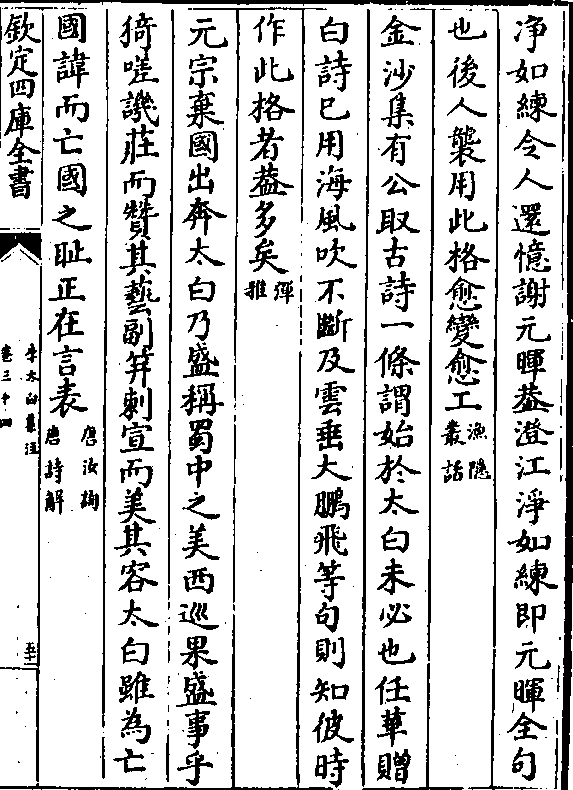 淨如練令人還憶謝元暉葢澄江淨如練即元暉全句
也後人襲用此格愈變愈工漁隱叢話
金沙集有公取古詩一條謂始於太白未必也任華贈
白詩已用海風吹不斷及雲垂大鵬飛等句則知彼時
作此格者葢多矣
元宗棄國出奔太白乃盛稱蜀中之美西巡果盛事乎
猗嗟譏莊而贊其藝副笄刺宣而美其容太白雖為亡
國諱而亡國之恥正在言表唐汝詢唐詩解
欽定四庫全書
李太白集注
卷三十四